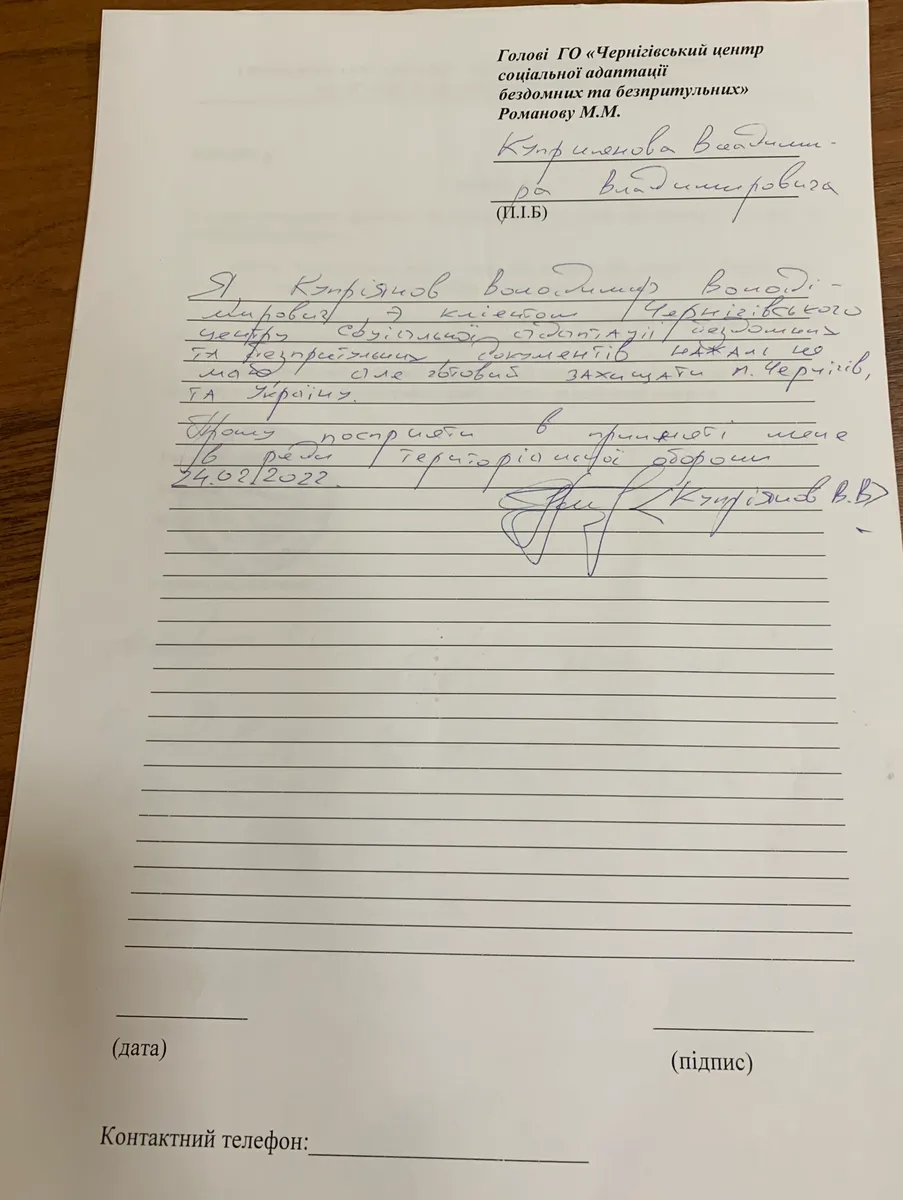 Голові ГО «Чернігівський центр
соціальної адаптації
бездомних та безпритульних»
Романову М.М.
Куприянова Владими-
ра Владимировича
(П.І.Б)
Я, Купріянов Володимир Володі-
мирович, Э клієнтом Чернігівського
центру соціальної адаптації бездомних
та безпритульних, документів нажаль не
маю, але готовий захищати м. Чернігів,
та Україну.
Прошу посприяти в прийняті мене
в ряди територіальної оборони
24.02.2022. Купріянов В.В
(дата)
(підпис)
Контактний телефон: